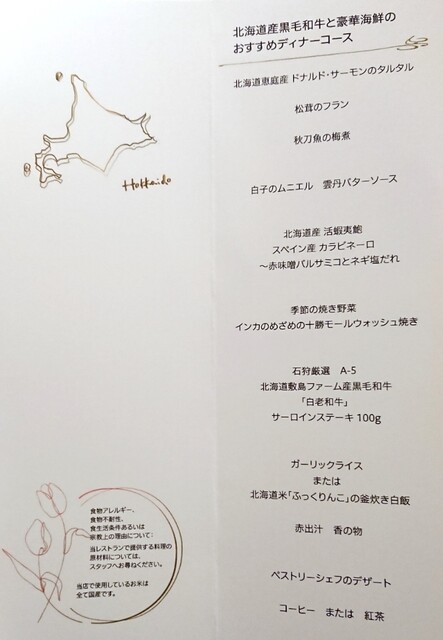 北海道産黒毛和牛と豪華海鮮の
おすすめディナーコース
北海道恵庭産 ドナルド・サーモンのタルタル
松茸のフラン
秋刀魚の梅煮
白子のムニエル　雲丹バターソース
北海道産 活蝦夷鮑
スペイン産 カラビネーロ
～赤味噌バルサミコとネギ塩だれ
季節の焼き野菜
インカのめざめの十勝モールウォッシュ焼き
石狩厳選　A-5
北海道敷島ファーム産黒毛和牛
「白老和牛」
サーロインステーキ 100g
ガーリックライス
または
北海道米「ふっくりんこ」の釜炊き白飯
赤出汁　香の物
ペストリーシェフのデザート
コーヒー　または　紅茶
Hokkaido
食物アレルギー、
食物不耐性、
食生活条件あるいは
宗教上の理由について:
当レストランで提供する料理の
原材料については、
スタッフへお尋ねください。
当店で使用しているお米は
全て国産です。